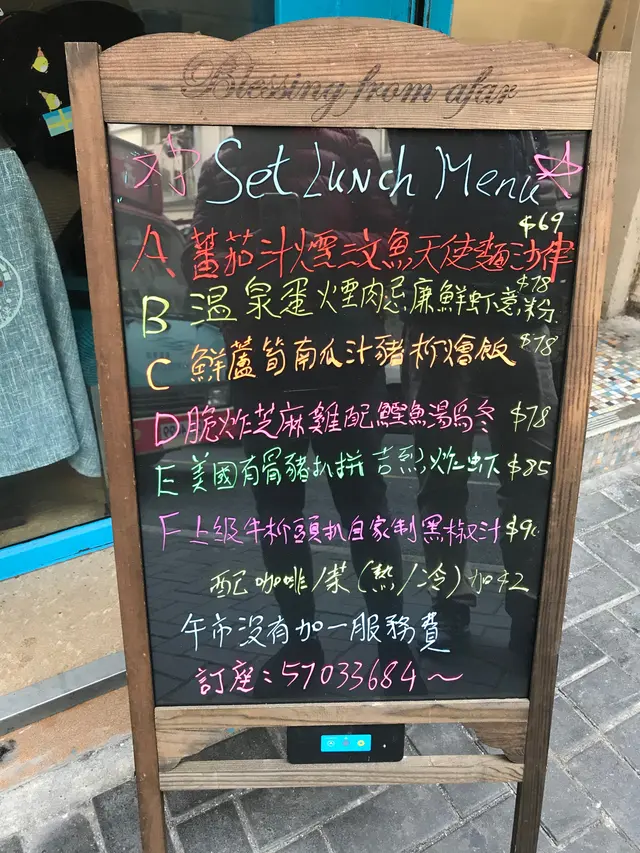 Blessing from afar
Set Lunch Menu
$69
A 蕃茄汁煙三文魚天使麵沙律
$78
B 温泉蛋煙肉忌廉鮮虾意粉
$78
C 鮮蘆筍南瓜汁豬柳燴飯
D 脆炸芝麻雞配鰹魚湯烏冬 $78
E 美國有骨豬扒拼吉烈炸虾 $85
F 上級牛柳頭扒自家制黑椒汁
配咖啡/茶(熱/冷)加$2
午市没有加一服務費
訂座:57033684~